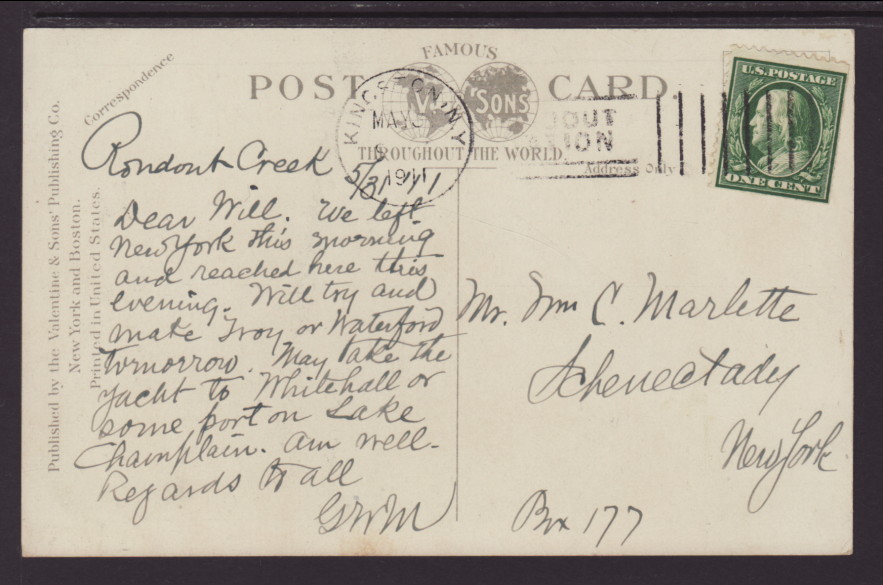 FAMOUS
POST CARD.
V & SONS
THROUGHOUT THE WORLD
Address Only
Correspondence
Published by the Valentine & Sons' Publishing Co.
New York and Boston.
Printed in United States.
KINGSTON, N.Y.
MAY
1911
U.S. POSTAGE
ONE CENT
Rondout Creek
5/3/11
Dear Will. We left
New York this morning
and reached here this
evening. Will try and
make Troy or Waterford
tomorrow. May take the
yacht to Whitehall or
some port on Lake
Champlain. am well.
Regards to all
GWM
Mr. Wm C. Marlette
Schenectady
New York
Box 177